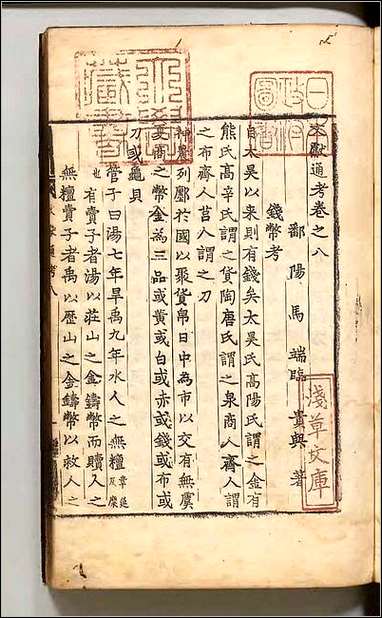 文獻通考卷之八
鄱陽馬端臨貴與著
錢幣考
自太昊以來則有錢矣太昊氏高陽氏謂之金有
熊氏高辛氏謂之貨陶唐氏謂之泉商人齊人謂
之布齊人莒人謂之刀
神農列廛於國以聚貨帛日中為市以交有無虞
夏商之幣金為三品或黃或白或赤或錢或布或
刀或龜貝
管子曰湯七年旱禹九年水人之無𥼷章延反糜
也有賣子者湯以莊山之金鑄幣而贖人之
無𥼷賣子者禹以歷山之金鑄幣以救人之
淺草文庫